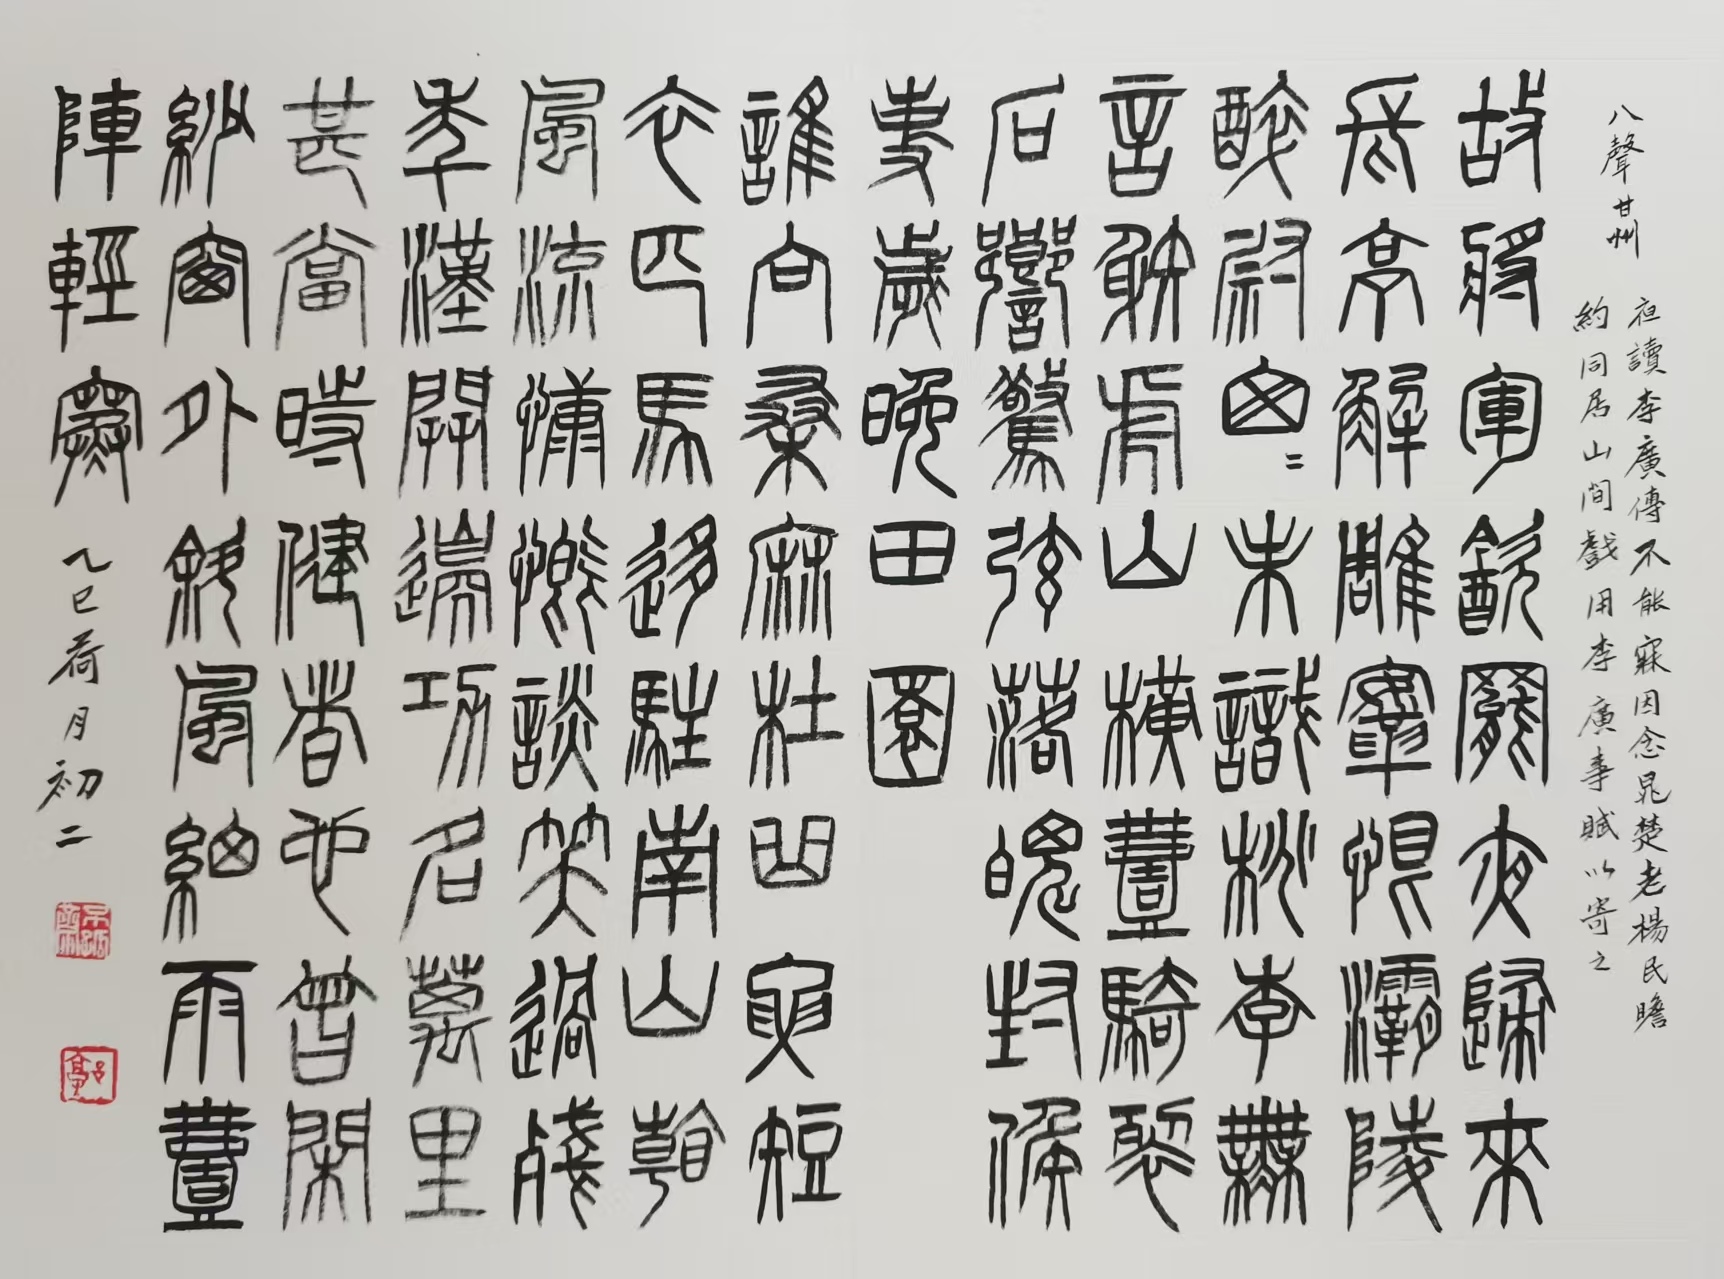 八聲甘州
夜讀李廣傳不能寐因念晁楚老楊民瞻
約同居山間戲用李廣事賦以寄之
故將軍飲罷夜歸來
長亭解雕鞌恨灞陵
醉尉匆〻未識桃李無
言射虎山橫一騎裂
石響驚弦落魄封侯
事歲晚田園
誰向桑麻杜曲更短
衣匹馬移駐南山看
風流慷慨談笑過殘
年漢開邊功名萬里
甚當時健者也曾閑
紗窗外斜風細雨一
陣輕寒
乙巳荷月初二